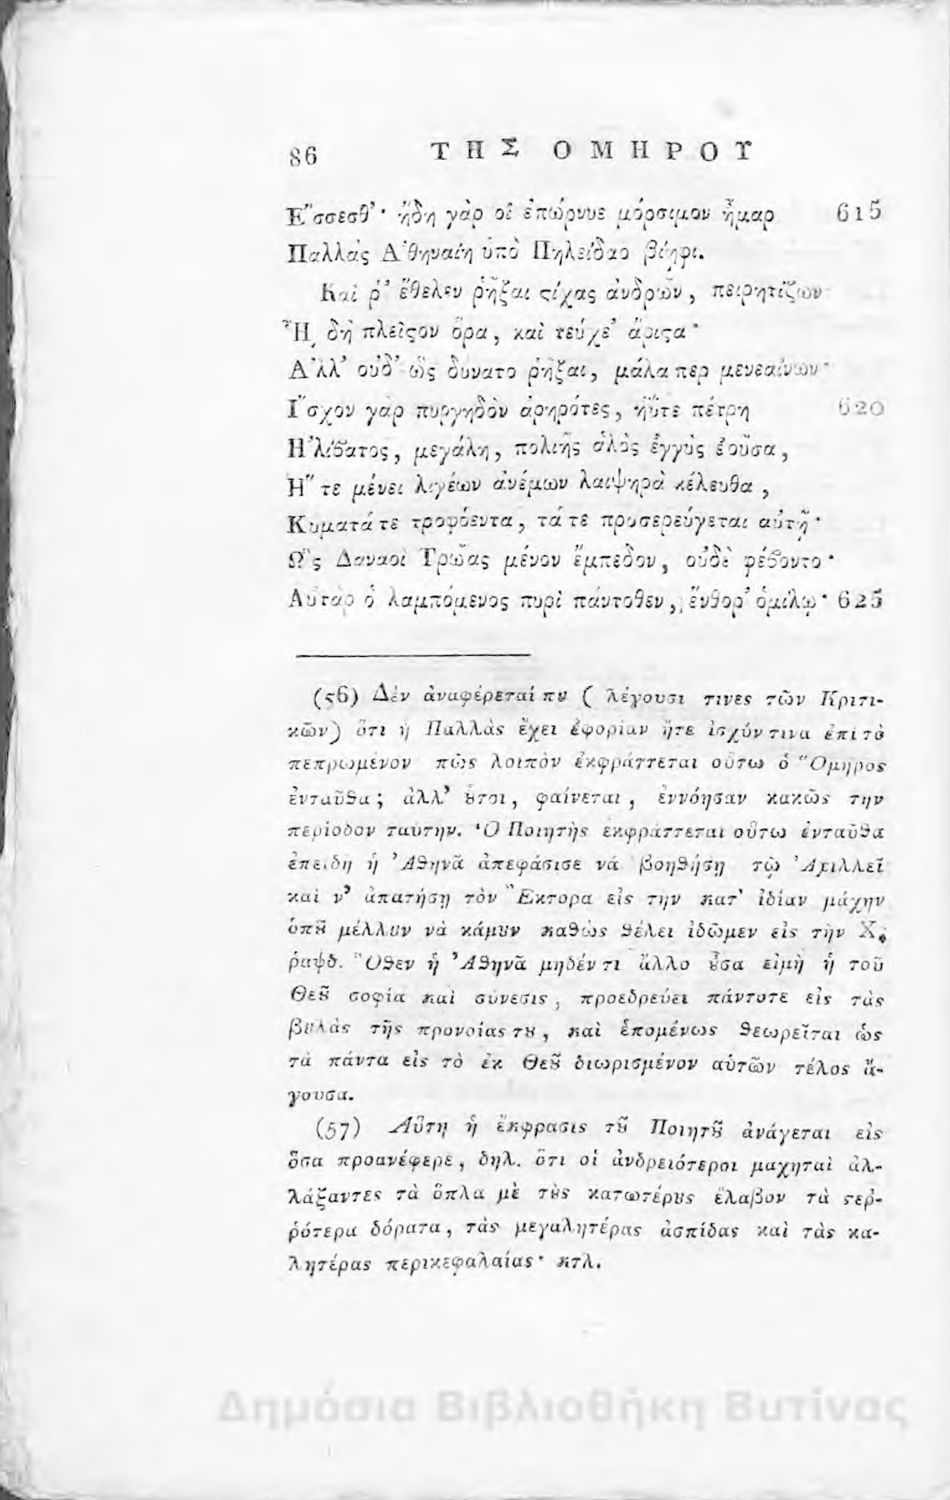 86 ΤΗΣ ΟΜΗΡΟΥ
Ἔσσεσθ'· ἤδη γάρ οἱ ἐπώρνυε μόρσιμον ἦμαρ 615
Παλλὰς Ἀθηναίη ὑπὸ Πηλείδαο βίηφι.
Καί ῥ' ἔθελεν ῥῆξαι ϛίχας ἀνδρῶν, πειρητίζων
Ἧι δὴ πλεῖϛον ὅρα, καὶ τεύχε' ἄριϛα·
Ἀλλ' οὐδ' ὣς δύνατο ῥῆξαι, μάλα περ μενεαίνων·
Ἴσχον γὰρ πυργηδὸν ἀρηρότες, ἠΰτε πέτρη 620
Ἠλίβατος, μεγάλη, πολιῆς ἁλὸς ἐγγὺς ἐοῦσα,
Ἥ τε μένει λιγέων ἀνέμων λαιψηρὰ κέλευθα,
Κύματά τε τροφόεντα, τά τε προσερεύγεται αὐτῇ·
Ὣς Δαναοὶ Τρῶας μένον ἔμπεδον, οὐδὲ φέβοντο·
Αὐτὰρ ὁ λαμπόμενος πυρὶ πάντοθεν, ἔνθορ' ὁμίλῳ· 625
(56) Δὲν ἀναφέρεταί πȣ ( λέγουσι τινες τῶν Κριτι-
κῶν) ὅτι ἡ Παλλὰς ἔχει ἐφορίαν ἤτε ἰσχύν τινα ἐπὶ τὸ
πεπρωμένον πῶς λοιπὸν ἐκφράττεται οὕτω ὁ Ὅμηρος
ἐνταῦθα; ἀλλ' ȣτοι, φαίνεται, ἐννόησαν κακῶς τὴν
περίοδον ταύτην. Ὁ Ποιητὴς ἐκφράττεται οὕτω ἐνταῦθα
ἐπειδὴ ἡ Ἀθηνᾶ ἀπεφάσισε νὰ βοηθήσῃ τῷ Ἀχιλλεῖ
καὶ ν' ἀπατήσῃ τὸν Ἕκτορα εἰς τὴν κατ' ἰδίαν μάχην
ὁπȣ͂ μέλλȣν νὰ κάμȣν καθὼς θέλει ἰδῶμεν εἰς τὴν Χ.
ῥαψδ. Ὅθεν ἡ Ἀθηνᾶ μηδέν τι ἄλλο ȣ͂σα εἰμὴ ἡ τοῦ
Θεȣ͂ σοφία καὶ σύνεσις, προεδρεύει πάντοτε εἰς τὰς
βȣλὰς τῆς προνοίας τȣ, καὶ ἑπομένως θεωρεῖται ὡς
τὰ πάντα εἰς τὸ ἐκ Θεȣ͂ διωρισμένον αὐτῶν τέλος ἄ-
γουσα.
(57) Αὕτη ἡ ἔκφρασις τȣ͂ Ποιητȣ͂ ἀνάγεται εἰς
ὅσα προανέφερε, δηλ. ὅτι οἱ ἀνδρειότεροι μαχηταὶ ἀλ-
λάξαντες τὰ ὅπλα μὲ τȣ̀ς κατωτέρȣς ἔλαβον τὰ ϛερ-
ρότερα δόρατα, τὰς μεγαλητέρας ἀσπίδας καὶ τὰς κα-
λητέρας περικεφαλαίας· κτλ.
Δημόσια Βιβλιοθήκη Βυτίνας